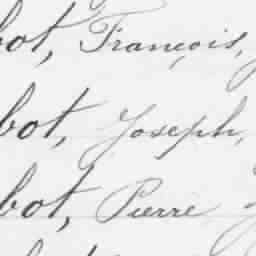 bot, François,
bot, Joseph,
bot, Pierre